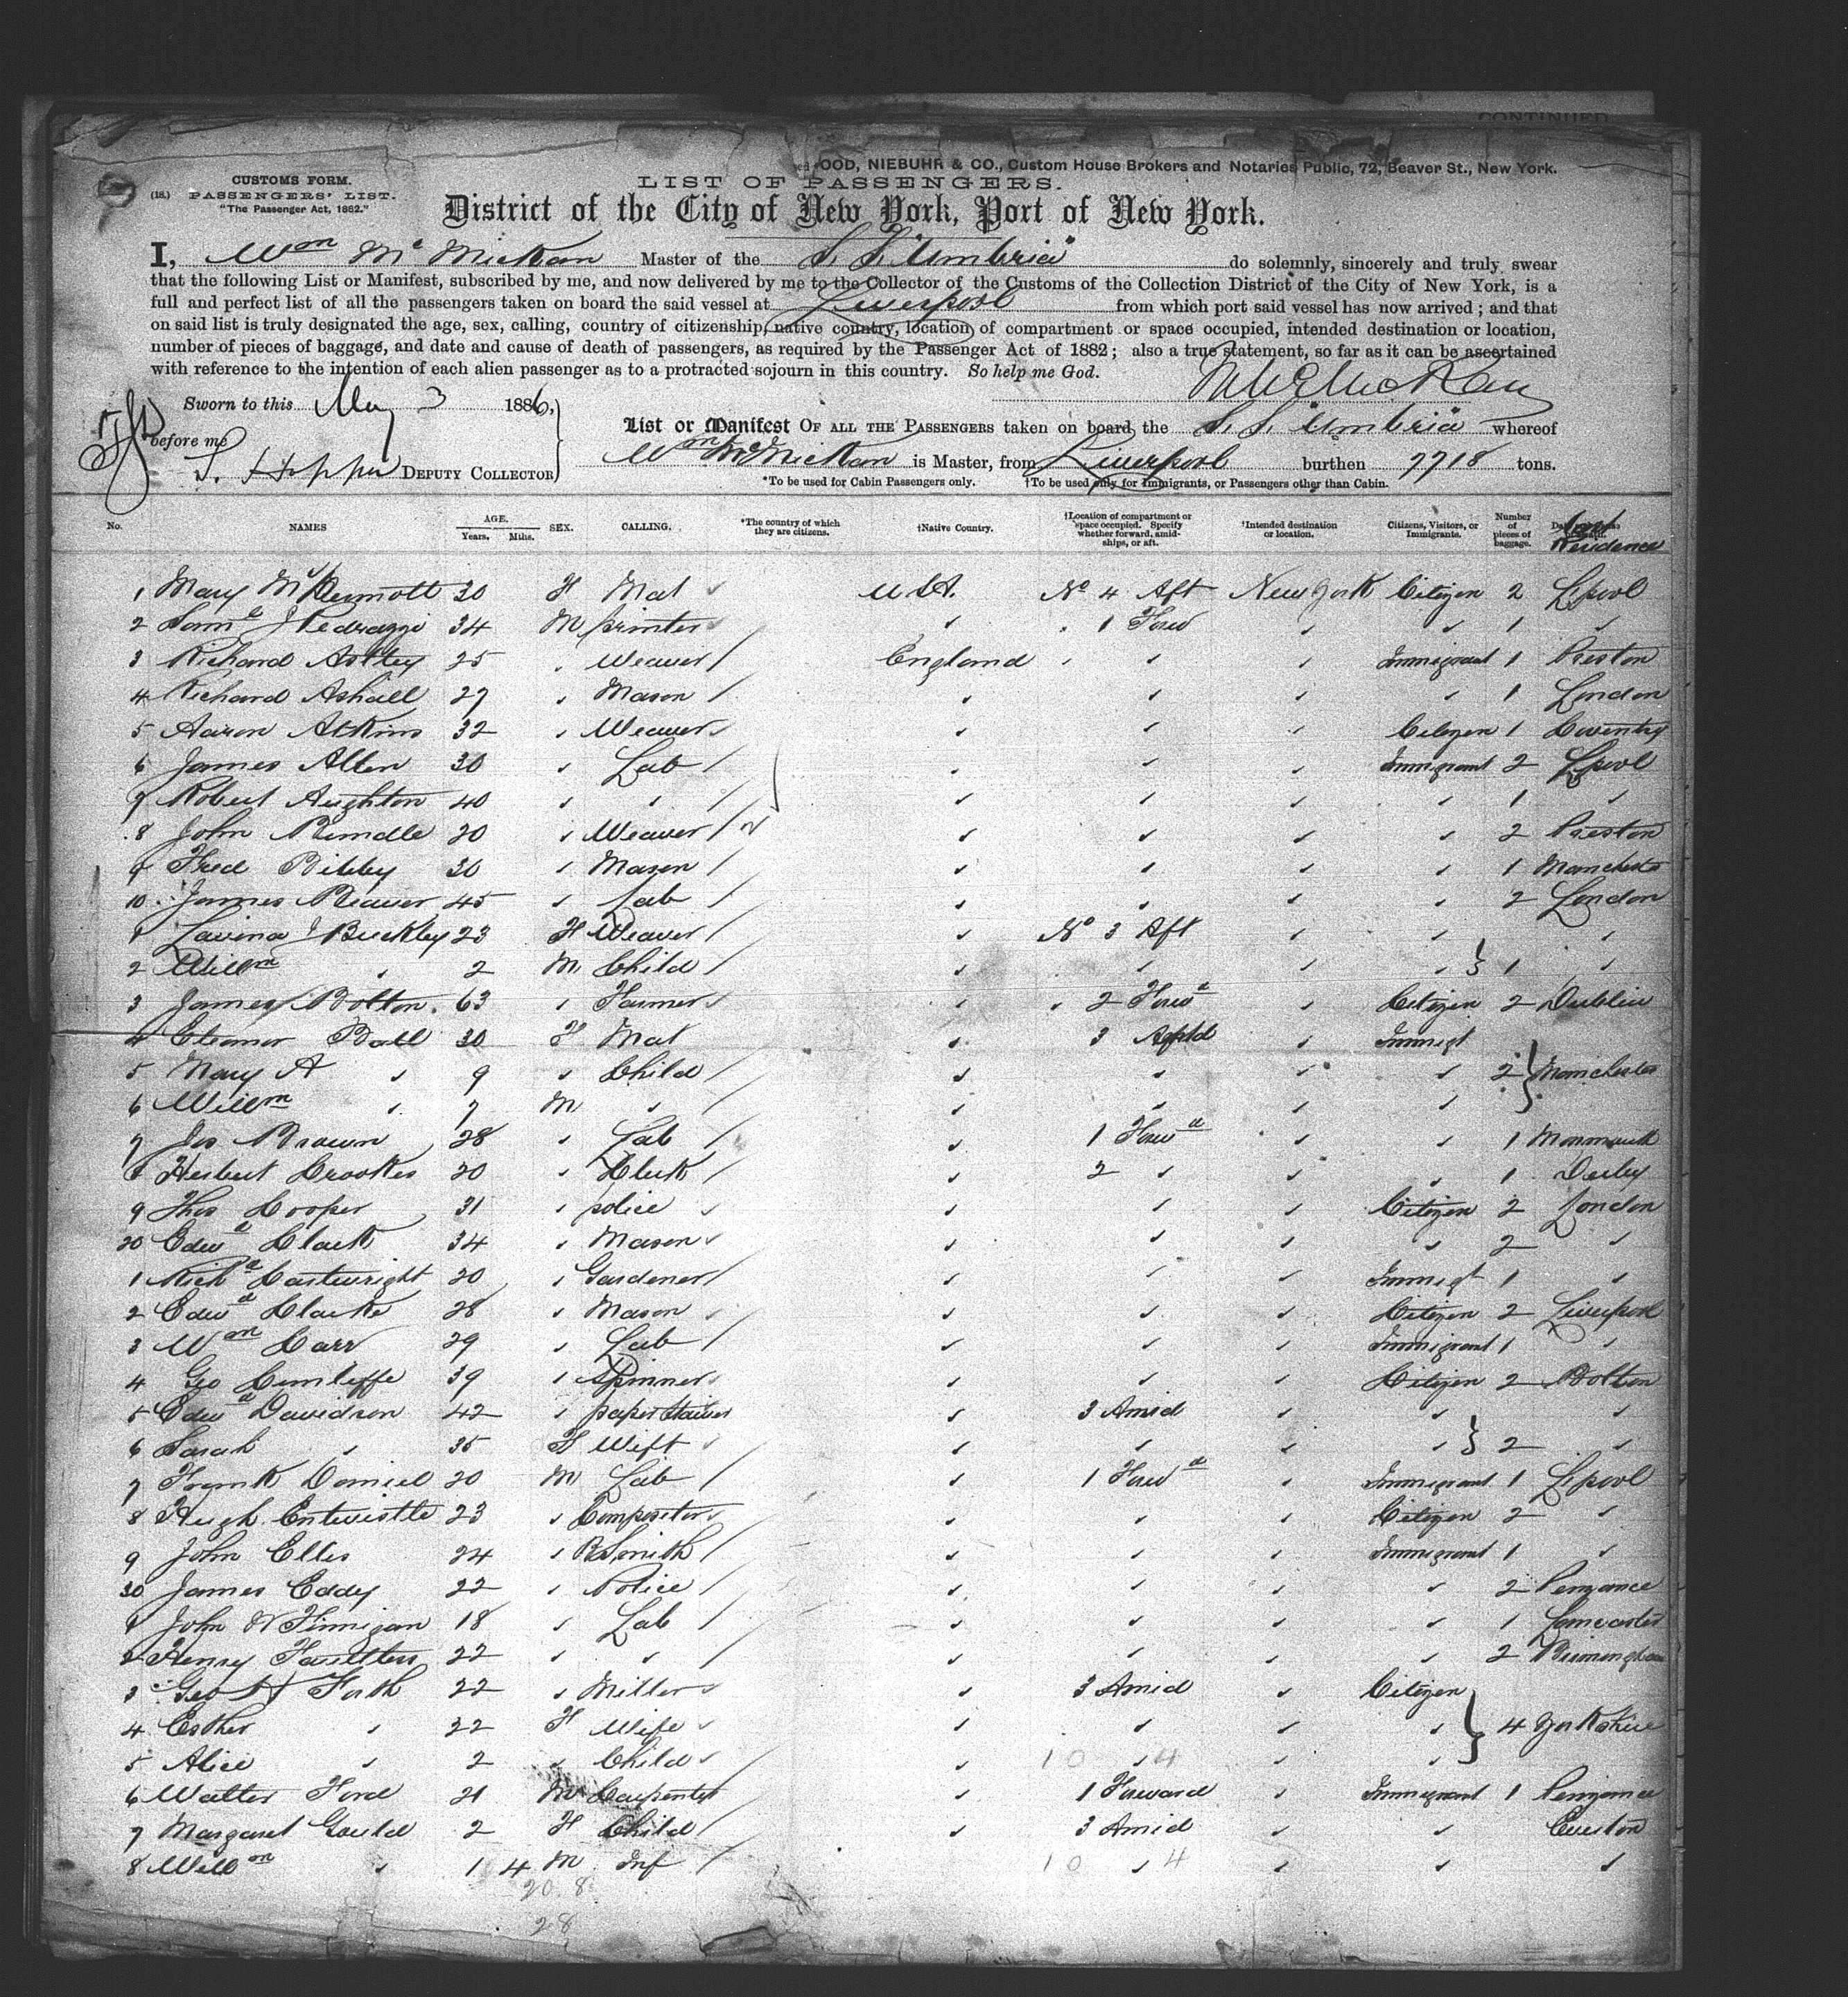 CONTINUED
OOD, NIEBUHR & CO., Custom House Brokers and Notaries Public, 72, Beaver St., New York.
CUSTOMS FORM.
LIST OF PASSENGERS.
(18.) PASSENGERS' LIST.
"The Passenger Act, 1882."
District of the City of New York, Port of New York.
I, Wm McMickan Master of the S. S. "Umbria" do solemnly, sincerely and truly swear
that the following List or Manifest, subscribed by me, and now delivered by me to the Collector of the Customs of the Collection District of the City of New York, is a
full and perfect list of all the passengers taken on board the said vessel at Liverpool from which port said vessel has now arrived; and that
on said list is truly designated the age, sex, calling, country of citizenship, native country, location of compartment or space occupied, intended destination or location,
number of pieces of baggage, and date and cause of death of passengers, as required by the Passenger Act of 1882; also a true statement, so far as it can be ascertained
with reference to the intention of each alien passenger as to a protracted sojourn in this country. So help me God.
Sworn to this May 3 1886,
before me
DEPUTY COLLECTOR
List or Manifest OF ALL THE PASSENGERS taken on board the S. S. "Umbria" whereof
Wm McMickan is Master, from Liverpool burthen 7718 tons.
*To be used for Cabin Passengers only. †To be used only for Immigrants, or Passengers other than Cabin.
No. NAMES AGE. Years. Mths. SEX. CALLING. *The country of which they are citizens. †Native Country. †Location of compartment or space occupied. Specify whether forward, amidships, or aft. †Intended destination or location. Citizens, Visitors, or Immigrants. Number of pieces of baggage. Last Residence
1 Mary McDermott 30 F Mat U.S.A. No 4 Aft New York Citizen 2 Lpool
2 Saml J 34 M printer ✓ 1 Forw ✓ ✓ 1 ✓
3 Richard Astley 25 ✓ Weaver / England ✓ ✓ ✓ Immigrant 1 Preston
4 Richard Ashall 27 ✓ Mason / ✓ ✓ ✓ ✓ 1 London
5 Aaron Atkins 32 ✓ Weaver ✓ ✓ ✓ Citizen 1 Coventry
6 James Allen 30 ✓ Lab / ✓ ✓ ✓ Immigrant 2 Lpool
7 Robert Aughton 40 ✓ ✓ / ✓ ✓ ✓ ✓ 1 ✓
8 John 20 ✓ Weaver / ✓ ✓ ✓ ✓ 2 Preston
9 Fred Bibby 30 ✓ Mason / ✓ ✓ ✓ ✓ 1 Manchester
10 James 45 ✓ Lab / ✓ ✓ ✓ ✓ 2 London
1 Lavina J Buckley 23 F Weaver / ✓ No 3 Aft ✓ ✓ ✓
2 Willm ✓ 2 M Child / ✓ ✓ ✓ ✓ } 1 ✓
3 James Bolton 63 ✓ Farmer ✓ 2 Forwd ✓ Citizen 2 Dublin
4 Eleanor Ball 30 F Mat ✓ 3 ✓ Immigt
5 Mary A ✓ 9 ✓ Child / ✓ ✓ ✓ ✓ 2 } Manchester
6 Willm ✓ 7 M ✓ / ✓ ✓ ✓ ✓
7 Jos Brown 28 ✓ Lab / ✓ 1 Forwd ✓ ✓ 1 Monmouth
8 Herbert Crookes 20 ✓ Clerk / ✓ 2 ✓ ✓ ✓ 1 Derby
9 Thos Cooper 31 ✓ police ✓ ✓ ✓ ✓ Citizen 2 London
20 Edwd Clark 34 ✓ Mason ✓ ✓ ✓ ✓ ✓ 2 ✓
1 Richd Cartwright 20 ✓ Gardener / ✓ ✓ ✓ Immigt 1 ✓
2 Edwd Clarke 28 ✓ Mason ✓ ✓ ✓ ✓ Citizen 2 Liverpool
3 Wm Carr 29 ✓ Lab / ✓ ✓ ✓ Immigrant 1 ✓
4 Geo Cunliffe 39 ✓ Spinner ✓ ✓ ✓ ✓ Citizen 2 Bolton
5 Edwd Davidson 42 ✓ paper Stainer ✓ 3 Amid ✓ ✓ ✓
6 Sarah ✓ 35 F Wife ✓ ✓ ✓ ✓ ✓ } 2 ✓
7 Frank Daniel 20 M Lab / ✓ 1 Forwd ✓ Immigrant 1 Lpool
8 Hugh Entwistle 23 ✓ Compositor ✓ ✓ ✓ ✓ Citizen 2 ✓
9 John Elles 24 ✓ B Smith / ✓ ✓ ✓ Immigrant 1 ✓
30 James Eddy 22 ✓ Police / ✓ ✓ ✓ ✓ 2 Penzance
1 John W Finnigan 18 ✓ Lab / ✓ ✓ ✓ ✓ 1 Lancaster
2 Henry 22 ✓ ✓ / ✓ ✓ ✓ ✓ 2 Birmingham
3 Geo H Firth 22 ✓ Miller ✓ ✓ 3 Amid ✓ Citizen
4 Esther ✓ 22 F Wife ✓ ✓ ✓ ✓ ✓ } 4 Yorkshire
5 Alice ✓ 2 ✓ Child ✓ ✓ 10 ✓ 4 ✓ ✓
6 Walter Ford 21 M Carpenter / ✓ 1 Forward ✓ Immigrant 1 Penzance
7 Margaret Gould 2 F Child / ✓ 3 Amid ✓ ✓
8 Willm ✓ 1 4 M Inf / 10 ✓ 4 ✓ ✓ ✓
20 8
28